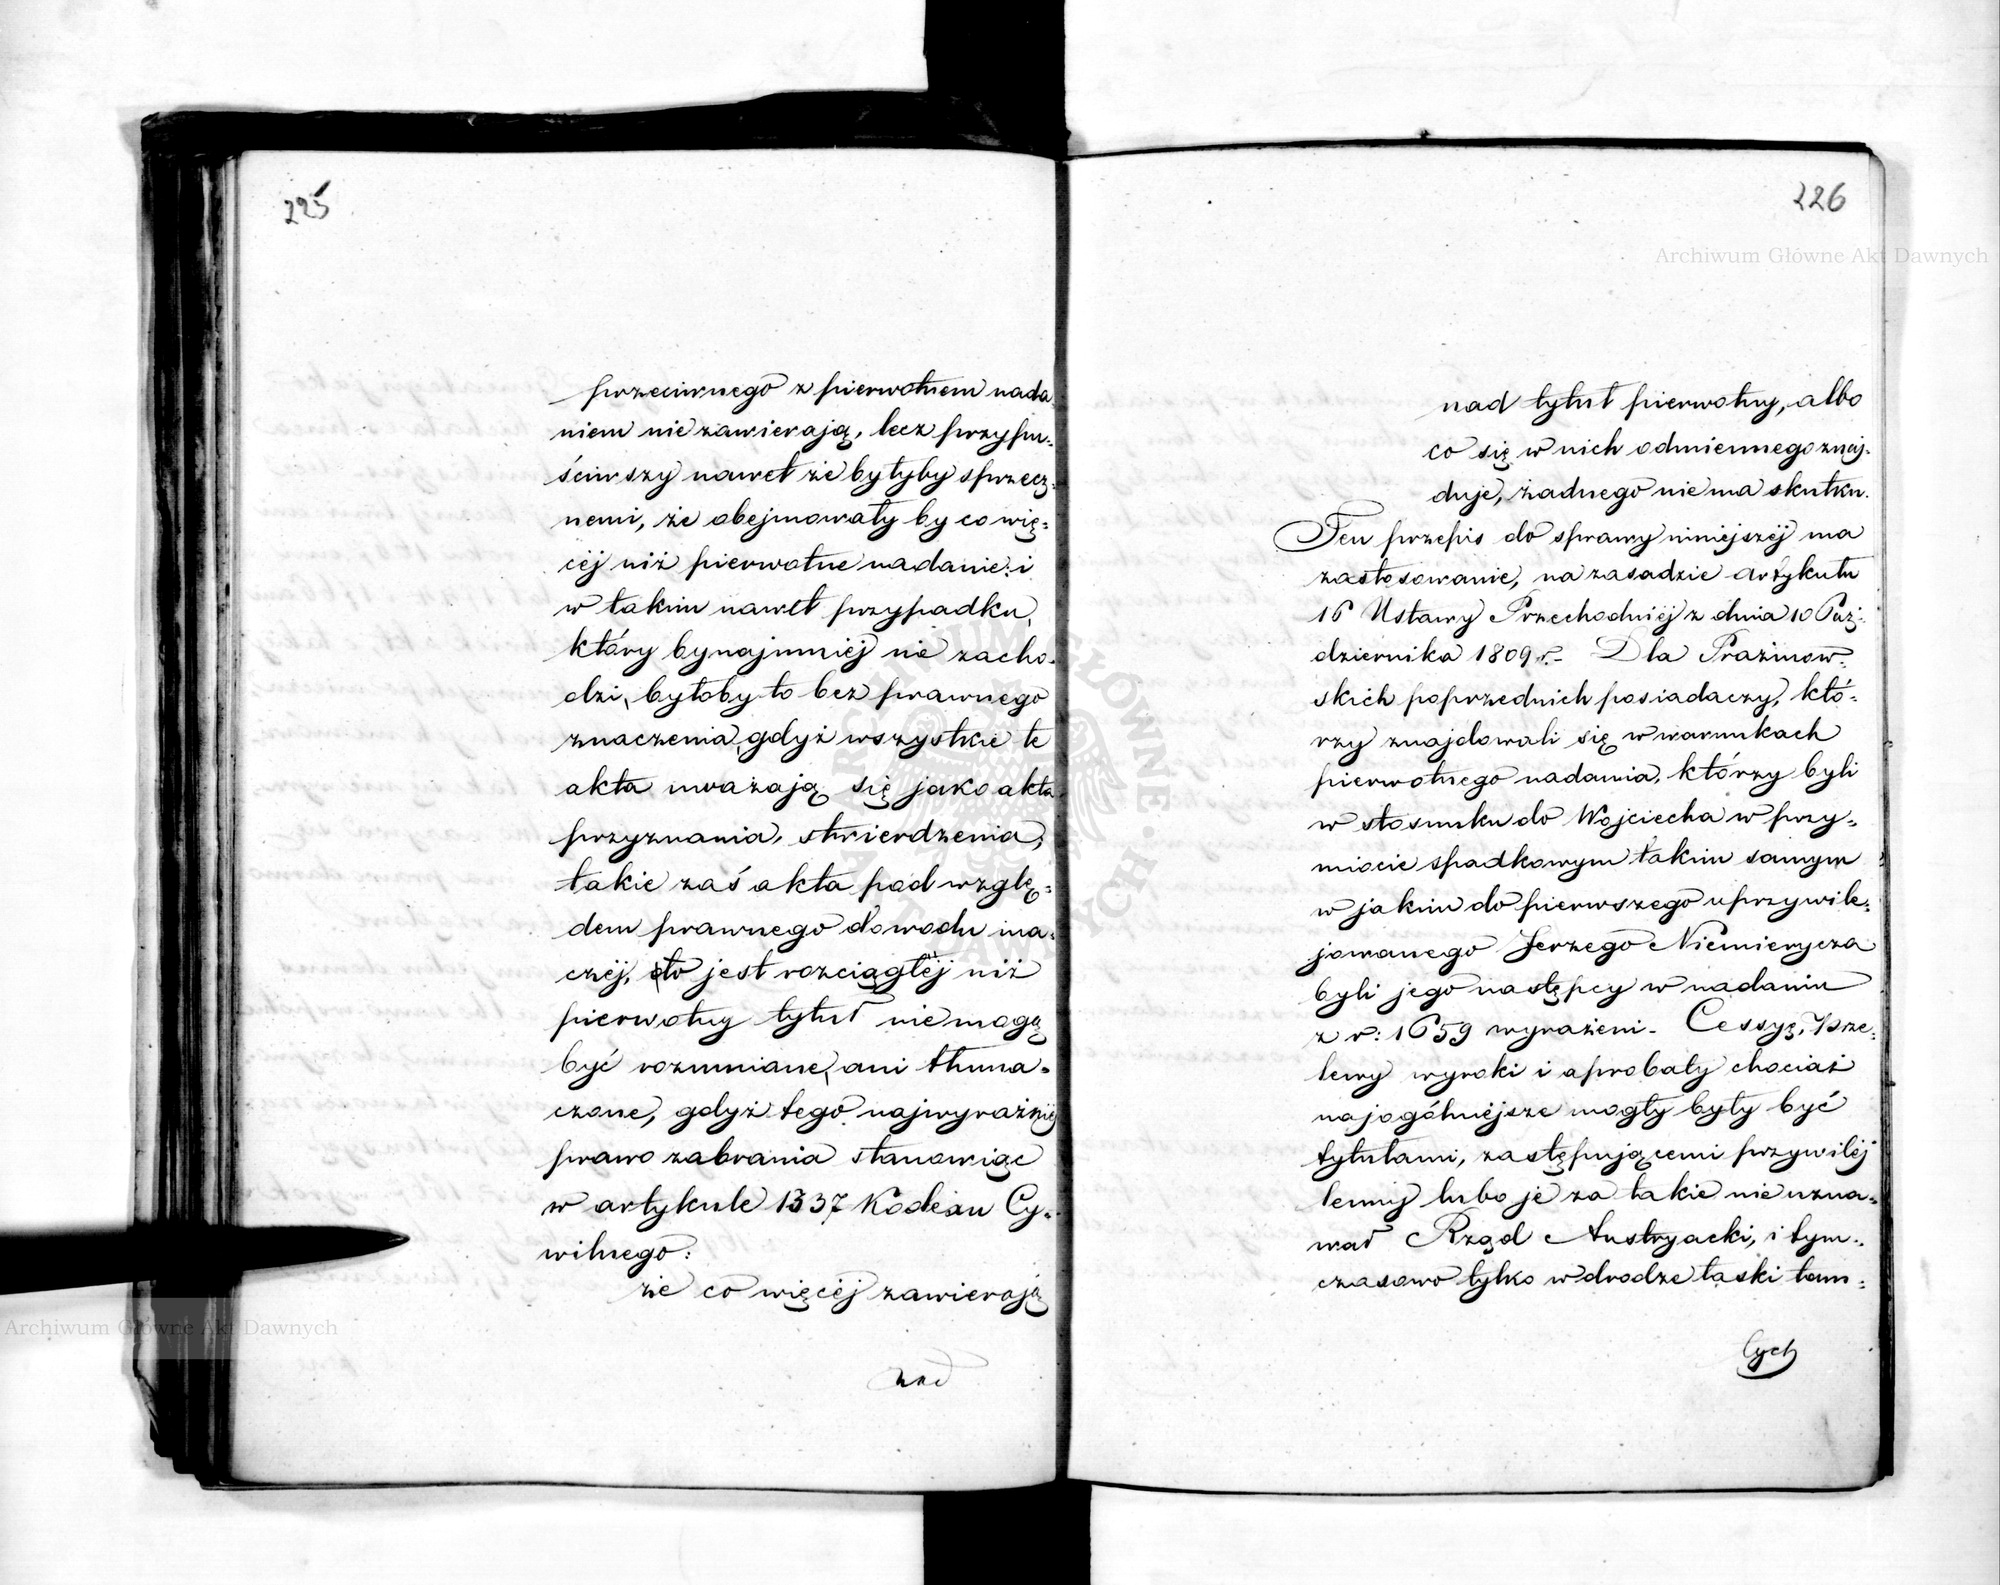 225
przeciwnego z pierwotnem nada-
niem nie zawierają, lecz przypu-
ściwszy nawet że byłyby sprzecz-
nemi, że obejmowały by co wię-
céj niż pierwotne nadanie; i
w takim nawet przypadku,
który bynajmniéj nie zacho-
dzi, byłoby to bez prawnego
znaczenia, gdyż wszystkie te
akta uważają się jako akta
przyznania, stwierdzenia,
takie zaś akta pod wzglę-
dem prawnego dowodu ina-
czéj, to jest rozciągléj niż
pierwotny tytuł nie mogą
być rozumiane, ani tłuma-
czone, gdyż tego najwyraźniéj
prawo zabrania stanowiąc
w artykule 1337 Kodexu Cy-
wilnego:
że co więcéj zawierają
nad
226
nad tytuł pierwotny, albo
co się w nich odmiennego znaj-
duje, żadnego nie ma skutku.
Ten przepis do sprawy niniejszéj ma
zastosowanie, na zasadzie artykułu
16 Ustawy Przechodniéj z dnia 10 Paź-
dziernika 1809 r. Dla Prażmow-
skich poprzednich posiadaczy, któ-
rzy znajdowali się w warunkach
pierwotnego nadania, którzy byli
w stosunku do Wojciecha w przy-
miocie spadkowym takim samym
w jakim do pierwszego uprzywile-
jowanego Jerzego Niemierycza
byli jego następcy w nadaniu
z r: 1659 wyrażeni. Cessyę, prze-
lewy wyroki i aprobaty chociaż
najogólniéjsze mogły były być
tytułami, zastępującemi przywiléj
lenny lubo je za takie nie uzna-
wał Rząd Austryacki, i tym-
czasowo tylko w drodze łaski tam-
tych
Archiwum Główne Akt Dawnych
Archiwum Główne Akt Dawnych